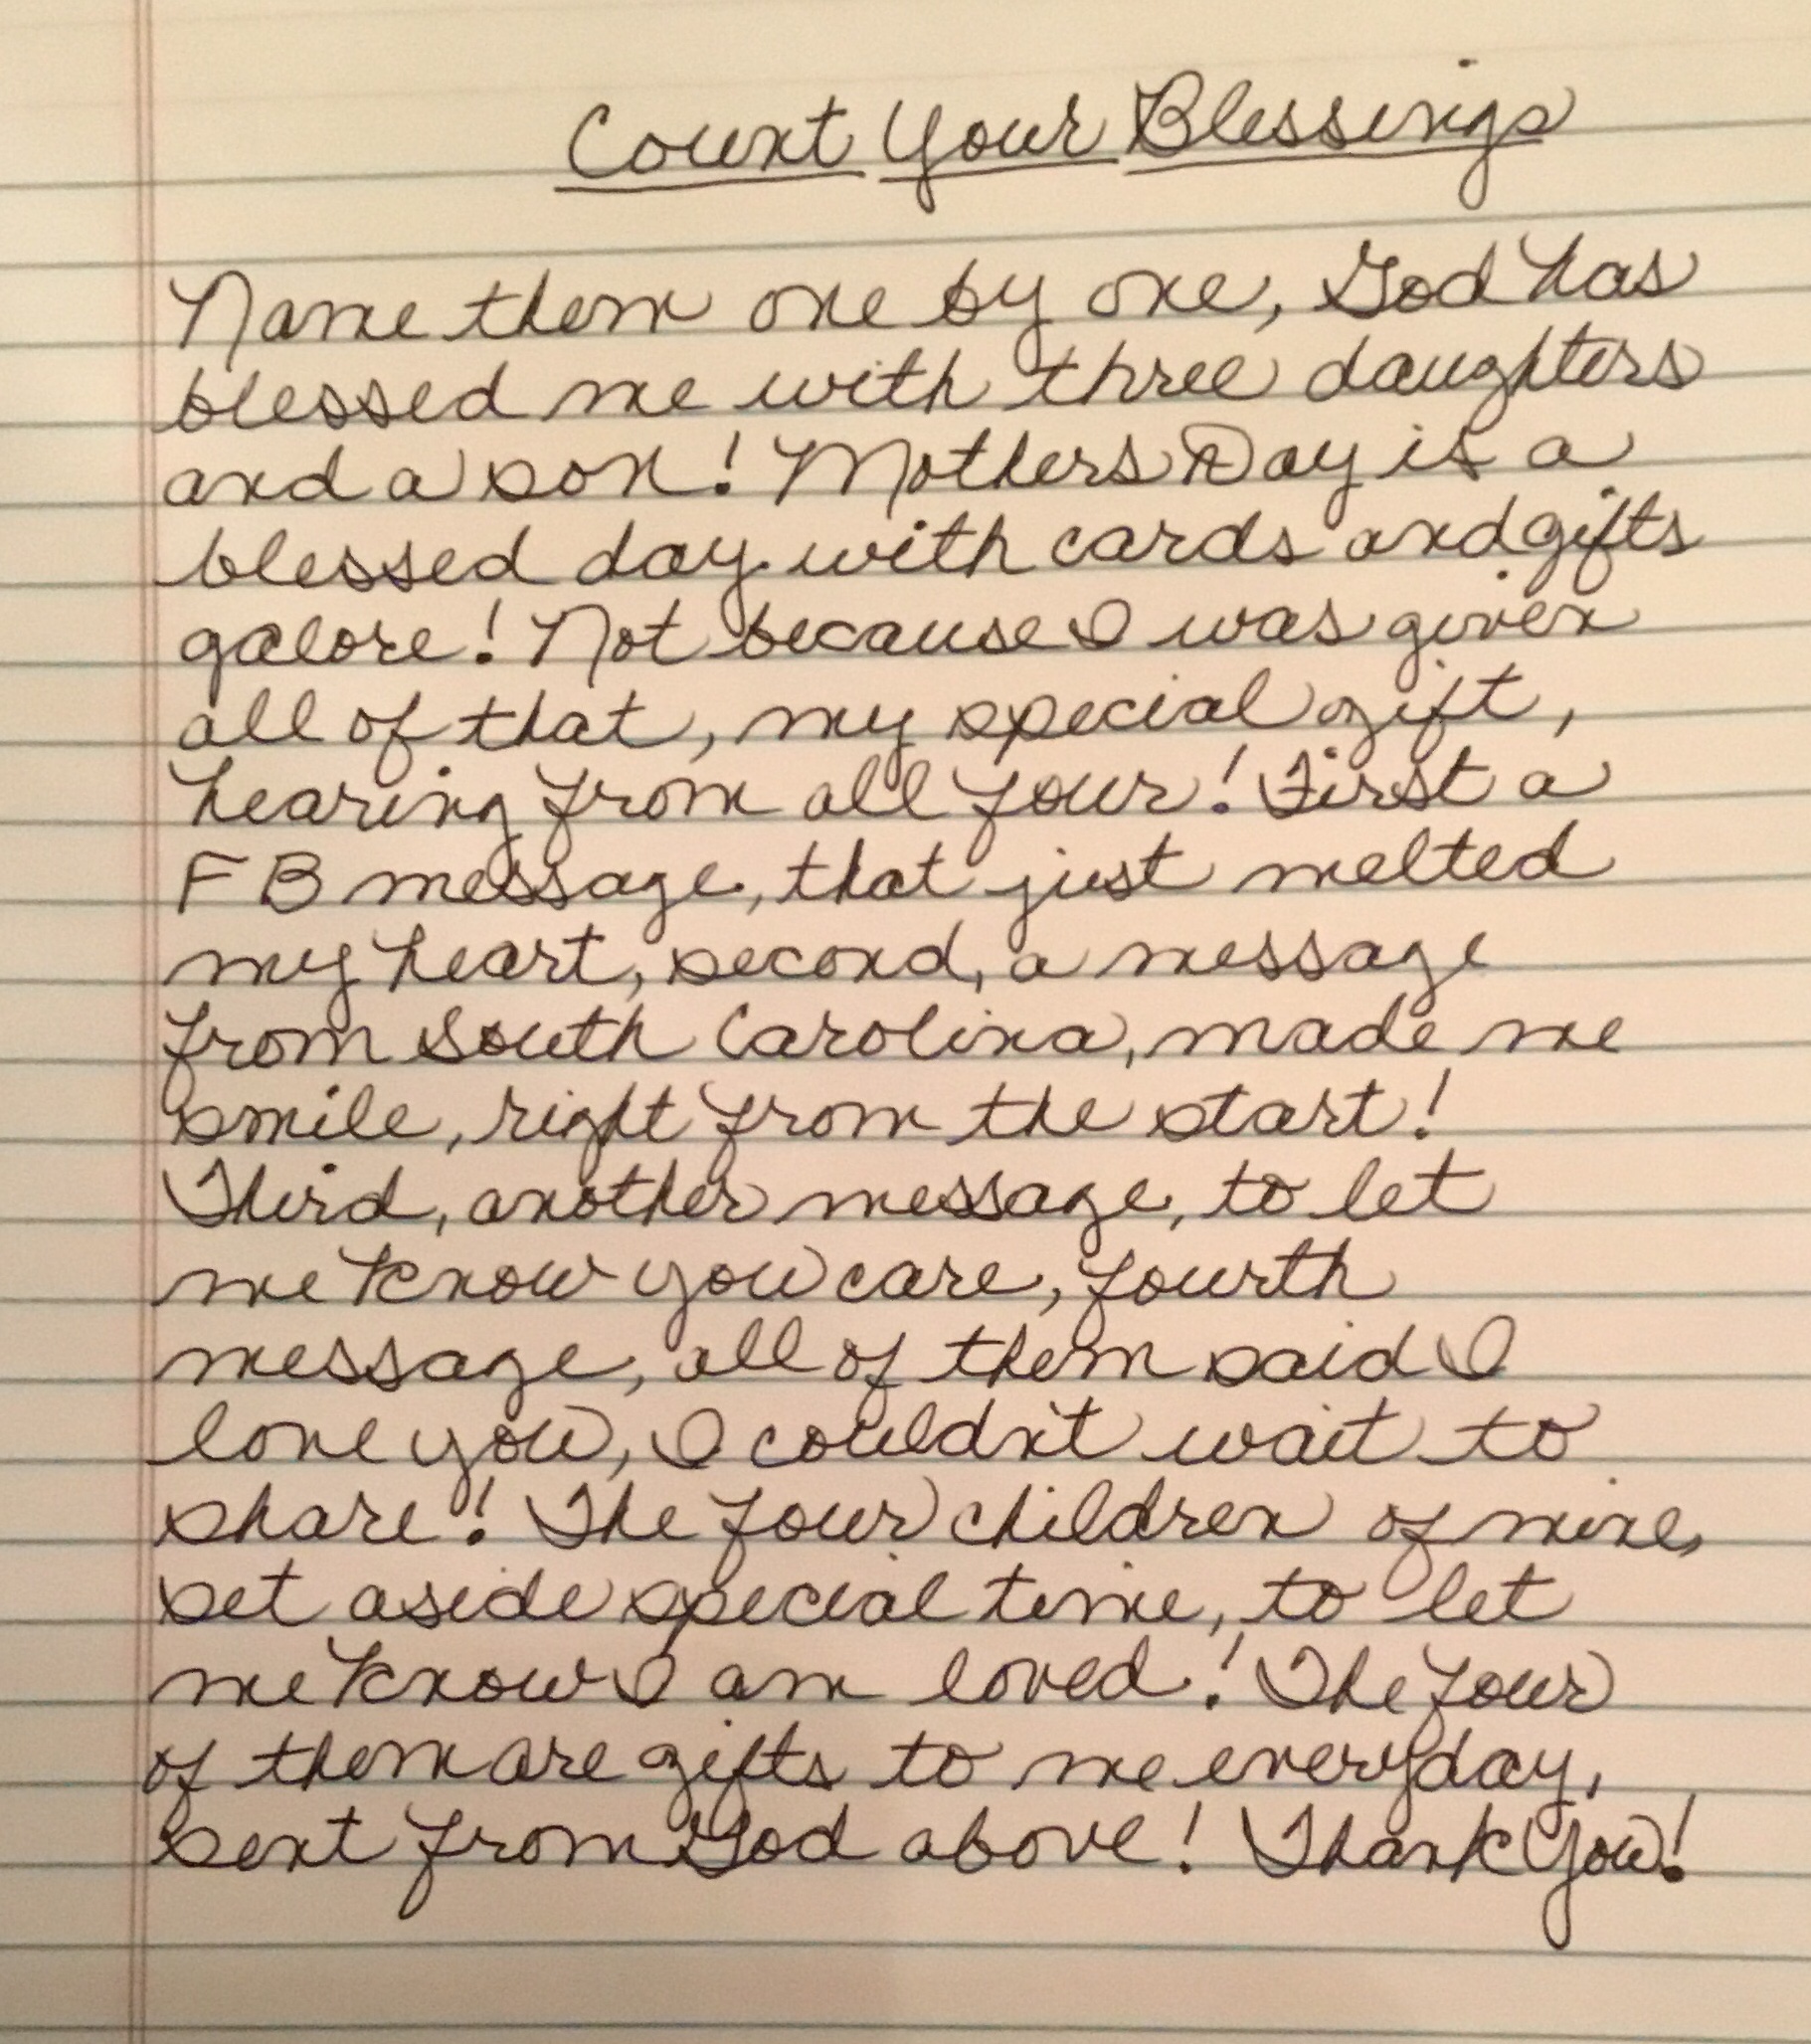 Count Your Blessings
Name them one by one, God has
blessed me with three daughters
and a son! Mothers Day is a
blessed day with cards and gifts
galore! Not because I was given
all of that, my special gift,
hearing from all four! First a
FB message, that just melted
my heart, second, a message
from South Carolina, made me
smile, right from the start!
Third, another message, to let
me know you care, fourth
message, all of them said I
love you, I couldn't wait to
share! The four children of mine,
set aside special time, to let
me know I am loved! The four
of them are gifts to me everyday,
sent from God above! Thank You!